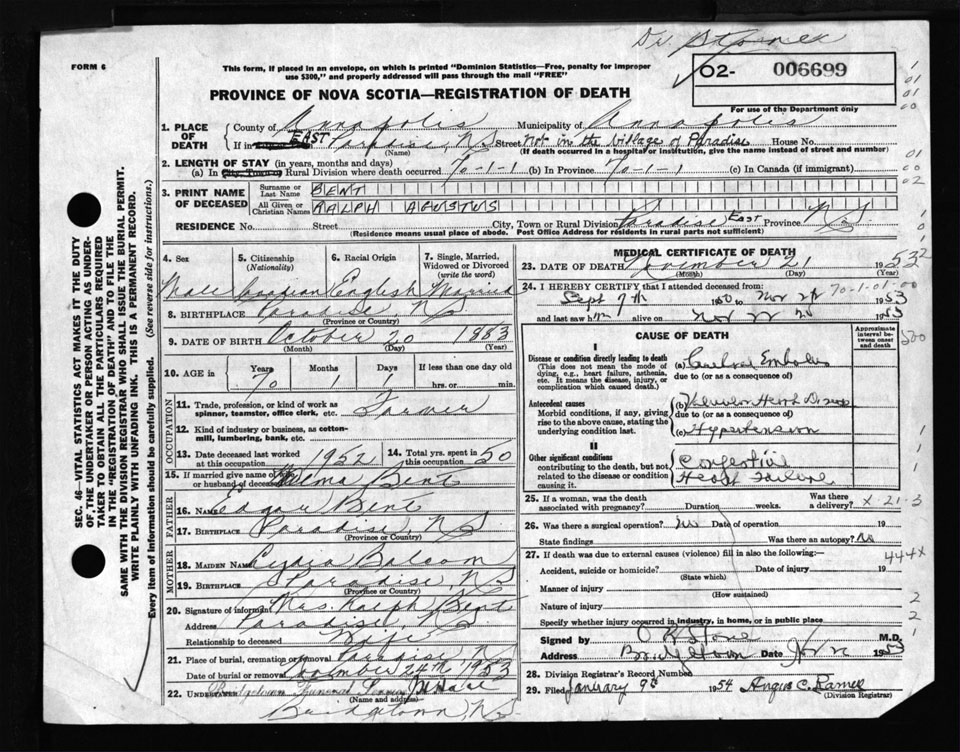 Dr Stone
FORM 6
This form, if placed in an envelope, on which is printed "Dominion Statistics—Free, penalty for improper
use $300," and properly addressed will pass through the mail "FREE"
O2- 006699
For use of the Department only
PROVINCE OF NOVA SCOTIA—REGISTRATION OF DEATH
1. PLACE OF DEATH
County of Annapolis Municipality of Annapolis
If in EAST Paradise, N.S. Street Not in the village of Paradise House No.
(Name) (If death occurred in a hospital or institution, give the name instead of street and number)
2. LENGTH OF STAY (in years, months and days)
(a) In City, Town or Rural Division where death occurred 70-1-1 (b) In Province 70-1-1 (c) In Canada (if immigrant)
3. PRINT NAME OF DECEASED
Surname or Last Name BENT
All Given or Christian Names RALPH AGUSTUS
RESIDENCE No. Street City, Town or Rural Division Paradise East Province N.S.
(Residence means usual place of abode. Post Office Address for residents in rural parts not sufficient)
4. Sex
Male
5. Citizenship
(Nationality)
Canadian
6. Racial Origin
English
7. Single, Married, Widowed or Divorced
(write the word)
Married
8. BIRTHPLACE Paradise, N.S.
(Province or Country)
9. DATE OF BIRTH October 20 1883
(Month) (Day) (Year)
10. AGE in
Years Months Days If less than one day
70 1 1 hrs. or min.
OCCUPATION
11. Trade, profession, or kind of work as
spinner, teamster, office clerk, etc. Farmer
12. Kind of industry or business, as cotton-
mill, lumbering, bank, etc.
13. Date deceased last worked
at this occupation 1952
14. Total yrs. spent in
this occupation 50
15. If married give name of wife
or husband of deceased Selma Bent
FATHER
16. Name Edgar Bent
17. Birthplace Paradise, N.S.
(Province or Country)
MOTHER
18. Maiden Name Lydia Balcom
19. Birthplace Paradise, N.S.
(Province or Country)
20. Signature of informant Mrs. Ralph Bent
Address Paradise, N.S.
Relationship to deceased Wife
21. Place of burial, cremation or removal Paradise N.S.
Date of burial or removal November 24th, 1953
22. UNDERTAKER Bridgetown Funeral Service
(Name and address)
Bridgetown, N.S.
MEDICAL CERTIFICATE OF DEATH
23. DATE OF DEATH November 21 1953
(Month) (Day) (Year)
24. I HEREBY CERTIFY that I attended deceased from:
Sept 7th to Nov 1953
and last saw him alive on Nov 1953
70-1-01-00
CAUSE OF DEATH
Approximate interval between onset and death
I
Disease or condition directly leading to death
(This does not mean the mode of dying, e.g., heart failure, asthenia, etc. It means the disease, injury, or complication which caused death.)
(a) Cerebral Embolus
due to (or as a consequence of)
Antecedent causes
Morbid conditions, if any, giving rise to the above cause, stating the underlying condition last.
(b) Valvular Heart Disease
due to (or as a consequence of)
(c) Hypertension
II
Other significant conditions
contributing to the death, but not related to the disease or condition causing it.
Congestive
Heart Failure
25. If a woman, was the death associated with pregnancy? Duration weeks. Was there a delivery?
X-21-3
26. Was there a surgical operation? No Date of operation 19
State findings Was there an autopsy? No
27. If death was due to external causes (violence) fill in also the following:—
444X
Accident, suicide or homicide? Date of injury 19
(State which)
Manner of injury
(How sustained)
Nature of injury
Specify whether injury occurred in industry, in home, or in public place
Signed by O R Stone M.D.
Address Bridgetown Date Nov 1953
28. Division Registrar's Record Number
29. Filed January 9th 1954 Angus C. Ramey
(Division Registrar)
SEC. 46—VITAL STATISTICS ACT MAKES IT THE DUTY
OF THE UNDERTAKER OR PERSON ACTING AS UNDER-
TAKER TO OBTAIN ALL THE PARTICULARS REQUIRED
IN THE "REGISTRATION OF DEATH" AND TO FILE THE
SAME WITH THE DIVISION REGISTRAR WHO SHALL ISSUE THE BURIAL PERMIT.
WRITE PLAINLY WITH UNFADING INK. THIS IS A PERMANENT RECORD.
Every item of information should be carefully supplied. (See reverse side for instructions.)